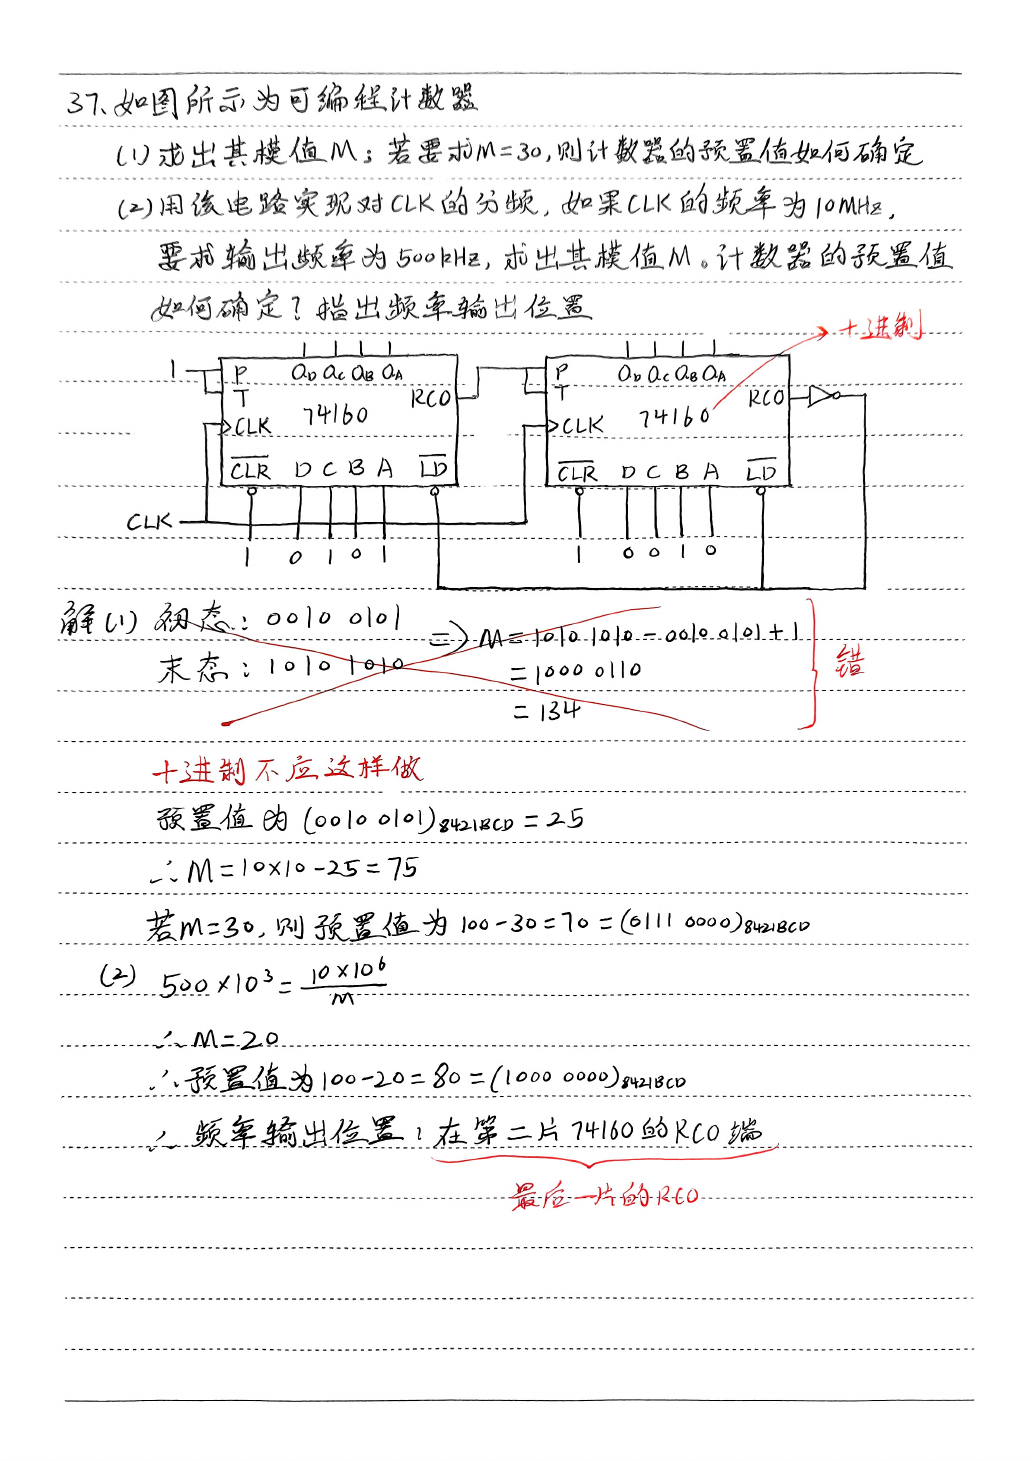 37、如图所示为可编程计数器
(1)求出其模值M；若要求M=30,则计数器的预置值如何确定
(2)用该电路实现对CLK的分频，如果CLK的频率为10MHz，
要求输出频率为500kHz，求出其模值M。计数器的预置值
如何确定？指出频率输出位置
十进制
1 P T QD QC QB QA RCO 74160 CLK CLR D C B A LD
P T QD QC QB QA RCO 74160 CLK CLR D C B A LD
CLK
1 0 1 0 1
1 0 0 1 0
解(1) 初态：0010 0101
末态：1010 1010
=> M=1010 1010-0010 0101+1
=1000 0110
=134
错
十进制不应这样做
预置值为(0010 0101)8421BCD=25
∴M=10×10-25=75
若M=30,则预置值为100-30=70=(0111 0000)8421BCD
(2) 500×10³=10×10⁶/M
∴M=20
∴预置值为100-20=80=(1000 0000)8421BCD
∴ 频率输出位置：在第二片74160的RCO端
最后一片的RCO